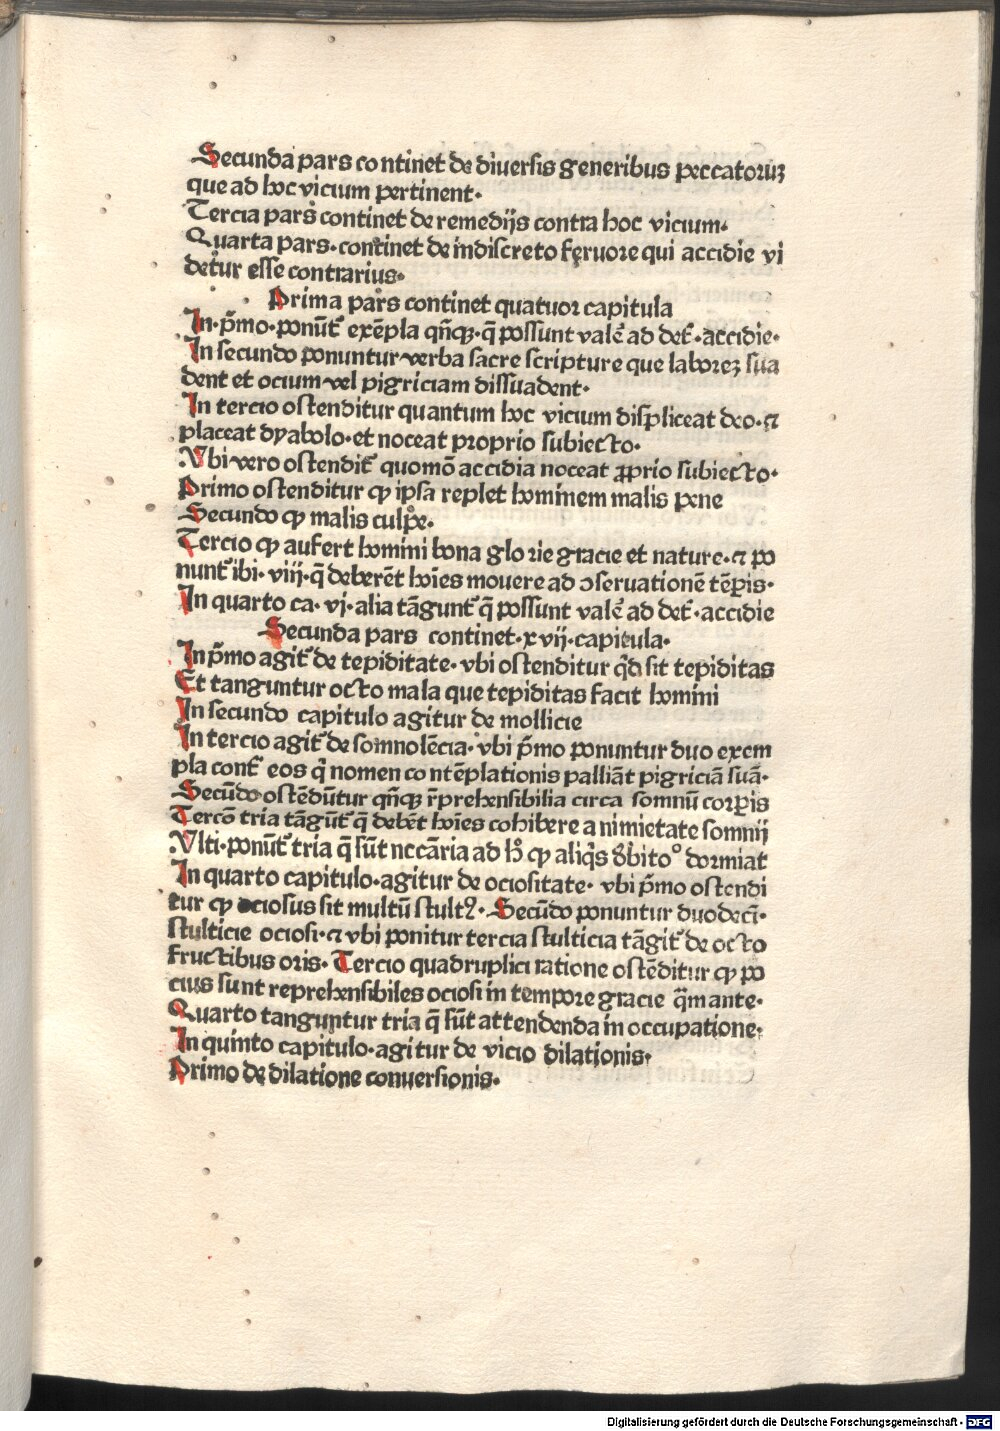 Secunda pars continet de diuersis generibus peccatoruꝫ
que ad hoc vicium pertinent·
Tercia pars continet de remedijs contra hoc vicium·
Quarta pars· continet de indiscreto feruore qui accidie vi
detur esse contrarius·
Prima pars continet quatuor capitula
In·p̄mo·ponūt᷑ exēpla qn̄qꝫ·q̄ possunt valē ad det᷑·accidie·
In secundo ponuntur verba sacre scripture que laboreꝫ sua
dent et ocium vel pigriciam dissuadent·
In tercio ostenditur quantum hoc vicium displiceat deo·⁊
placeat dyabolo·et noceat proprio subiecto·
Vbi vero ostendit᷑ quomō accidia noceat ꝓprio subiecto·
Primo ostenditur ꝙ ipsa replet hominem malis pene
Secundo ꝙ malis culpe·
Tercio ꝙ aufert homini bona glorie gracie et nature·⁊ po
nunt᷑ ibi·viij·q̄ deberēt hoīes mouere ad ꝯseruationē tēpis·
In quarto ca·vj·alia tāgunt᷑ q̄ possunt valē ad det᷑·accidie
Secunda pars continet·xvij·capitula·
In p̄mo agit᷑ de tepiditate·vbi ostenditur qd̄ sit tepiditas
Et tanguntur octo mala que tepiditas facit homini
In secundo capitulo agitur de mollicie
In tercio agit᷑ de somnolēcia·vbi p̄mo ponuntur duo exem
pla cont᷑ eos q̄ nomen contēplationis palliāt pigriciā suā·
Secūdo ostēdūtur qn̄qꝫ r̄prehensibilia circa somnū corꝑis
Tercō tria tāgūt᷑ q̄ debēt hoīes cohibere a nimietate somnij
Vlti·ponūt᷑ tria q̄ sūt nccāria ad h̄ ꝙ aliq̄s d̄bito° dormiat
In quarto capitulo·agitur de ociositate·vbi p̄mo ostendi
tur ꝙ ociosus sit multū stultꝰ·Secūdo ponuntur duodeci̅·
stulticie ociosi·⁊ vbi ponitur tercia stulticia tāgit᷑ de octo
fructibus oris·Tercio quadruplici ratione ostēditur ꝙ po
cius sunt reprehensibiles ociosi in tempore gracie q̄m ante·
Quarto tanguntur tria q̄ sūt attendenda in occupatione·
In quinto capitulo·agitur de vicio dilationis·
Primo de dilatione conuersionis·
Digitalisierung gefördert durch die Deutsche Forschungsgemeinschaft - DFG